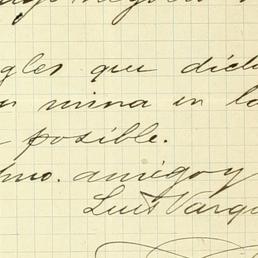 gles que dicta
mina en lo
posible.
mo. amigo y
Luis Varga